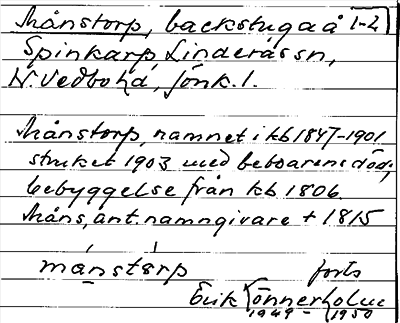 Månstorp, backstuga å 1-2
Spinkarp, Linderås sn,
N. Vedbo hd, Jönk. l.
Månstorp, namnet i kb 1847-1901
struket 1903 med beboarens död,
bebyggelse från kb 1806.
Måns, ant. namngivare + 1815
månstærp forts
Erik Tönnerholm
1949 - 1950